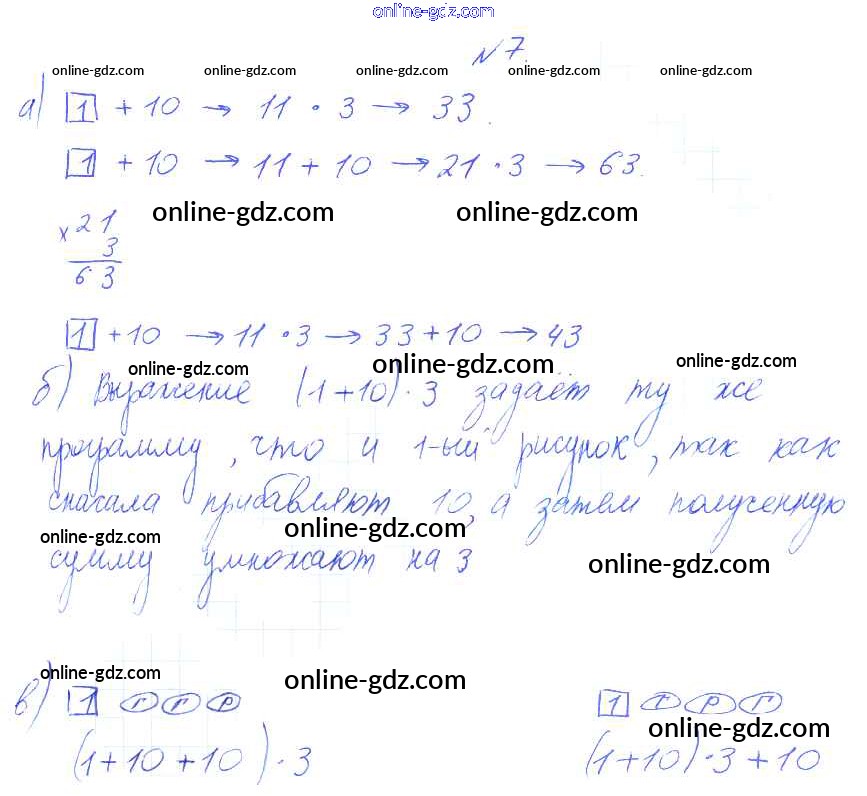 online-gdz.com
№ 7.
online-gdz.com online-gdz.com online-gdz.com online-gdz.com online-gdz.com
а) 1 + 10 → 11 · 3 → 33.
1 + 10 → 11 + 10 → 21 · 3 → 63.
online-gdz.com online-gdz.com
× 21
3
63
1 + 10 → 11 · 3 → 33 + 10 → 43
online-gdz.com online-gdz.com online-gdz.com
б) Выражение (1 + 10) · 3 задаёт ту же
программу, что и 1-ый рисунок, так как
сначала прибавляют 10, а затем полученную
online-gdz.com online-gdz.com
сумму умножают на 3
online-gdz.com
online-gdz.com online-gdz.com
в) 1 г г р 1 г р г
online-gdz.com
(1 + 10 + 10) · 3 (1 + 10) · 3 + 10